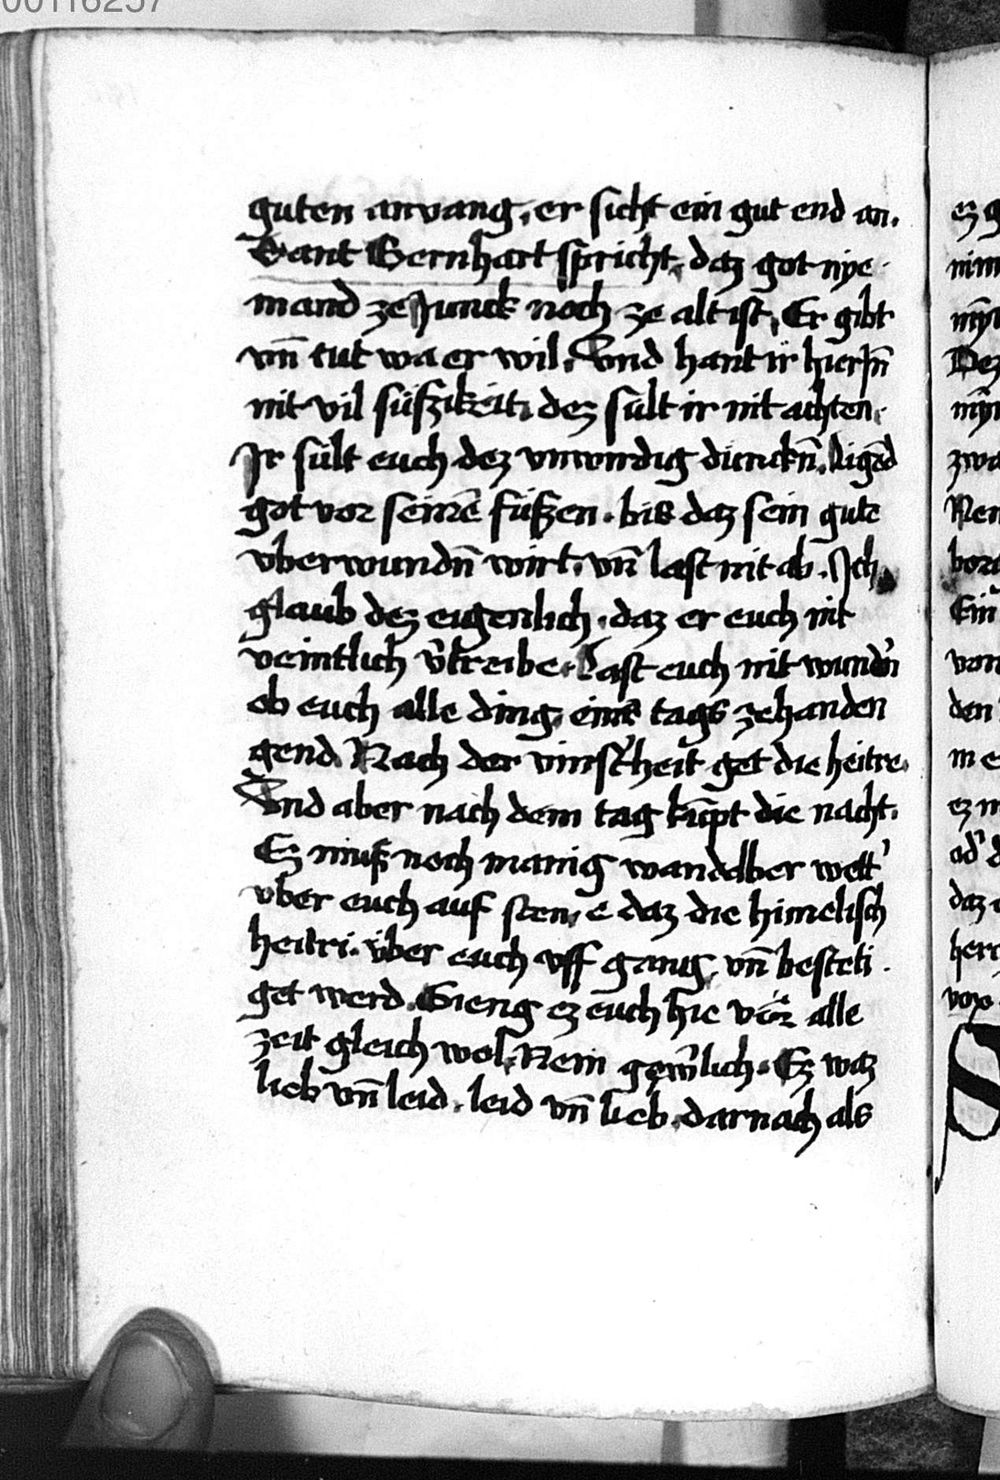 guten anvang, er sicht ein gut end an.
Sant Bernhart spricht, daz got nye
mand ze Junck noch ze alt ist, Er gibt
vn̄ tut wa er wil, Vnd hant ir hierJn̄
nit vil süszikeit, dez sült ir nit achten.
Jr sült euch dez vnwirdig duncken̄. ligēd
got vor seinen füßen. bis daz sein gute
vberwundn̄ wirt. vn̄ last nit ab. Jch
glaub dez eigenlich. daz er euch nit
veintlich v̄treibe. last euch nit wundn̄
ob euch alle ding eins tags zehanden
gend. Nach der vinsth̄eit get die heitre.
Vnd aber nach dem tag kūpt die nacht.
Ez muß noch manig wandelber wett'
vber euch auf sten, e daz die himelisch
heitri. über euch vff gang, vn̄ besteti
get werd. Gieng ez euch hie vor alle
zeit gleich wol, Nein gew̄lich. Ez waz
lieb vn̄ leid. leid vn̄ lieb. darnach als